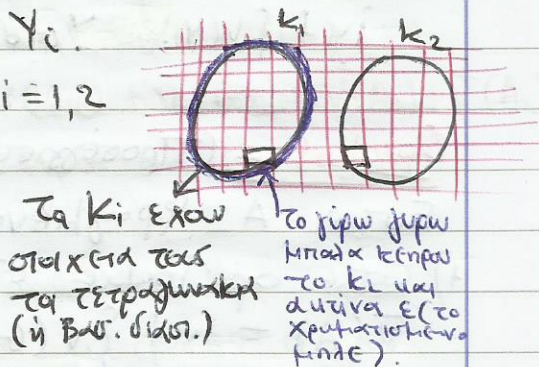 Yi.
k1
k2
i = 1, 2
Τα Ki έχουν
στοιχεία τους
τα τετραγωνάκια
(ή βασ. διαστ.)
το γύρω γύρω
μπάλα κέντρου
το k2 και
ακτίνα ε (το
χρωματισμένο
μπλε).